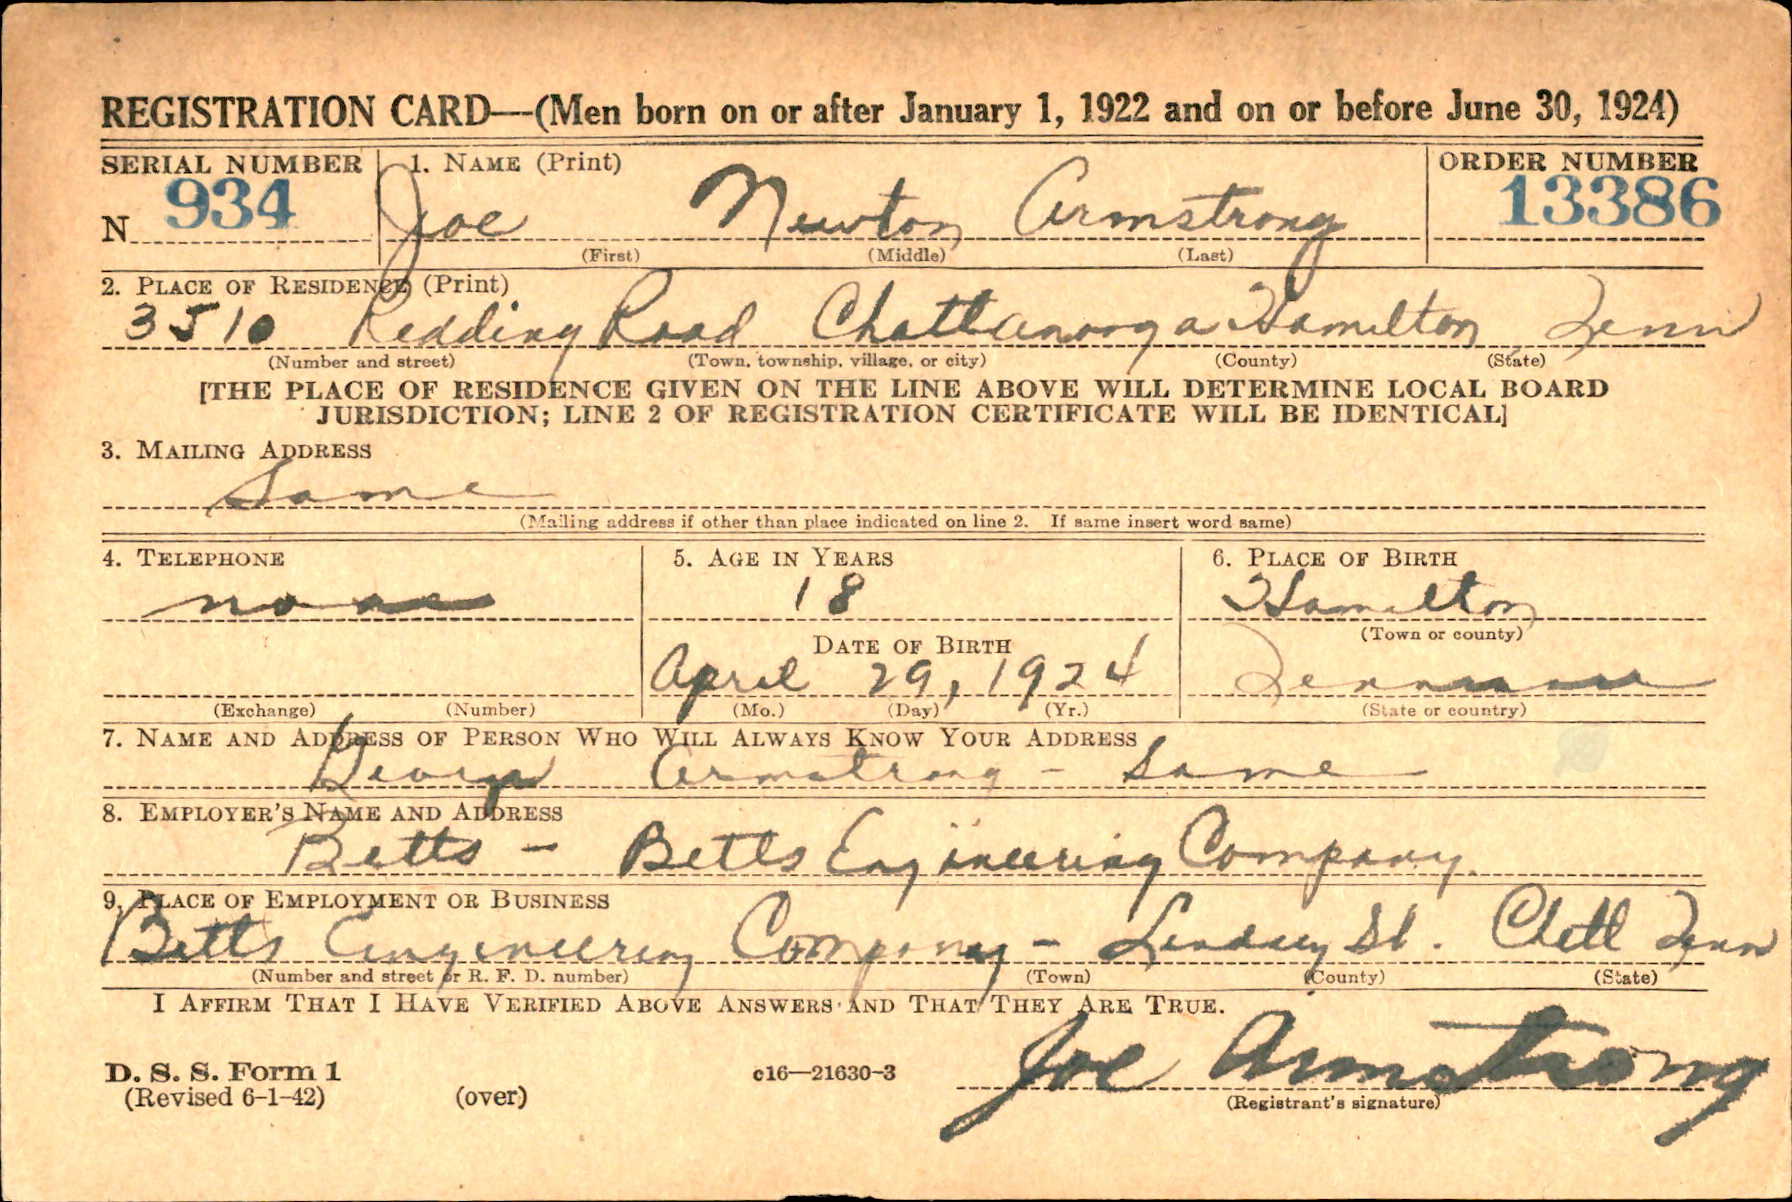 REGISTRATION CARD—(Men born on or after January 1, 1922 and on or before June 30, 1924)
SERIAL NUMBER 1. NAME (Print) ORDER NUMBER
N 934 Joe Newton Armstrong 13386
(First) (Middle) (Last)
2. PLACE OF RESIDENCE (Print)
3510 Redding Road Chattanooga Hamilton Tenn
(Number and street) (Town, township, village, or city) (County) (State)
[THE PLACE OF RESIDENCE GIVEN ON THE LINE ABOVE WILL DETERMINE LOCAL BOARD
JURISDICTION; LINE 2 OF REGISTRATION CERTIFICATE WILL BE IDENTICAL]
3. MAILING ADDRESS
Same
(Mailing address if other than place indicated on line 2. If same insert word same)
4. TELEPHONE 5. AGE IN YEARS 6. PLACE OF BIRTH
none 18 Hamilton
DATE OF BIRTH (Town or county)
April 29, 1924 Tennessee
(Exchange) (Number) (Mo.) (Day) (Yr.) (State or country)
7. NAME AND ADDRESS OF PERSON WHO WILL ALWAYS KNOW YOUR ADDRESS
George Armstrong - Same
8. EMPLOYER'S NAME AND ADDRESS
Betts - Betts Engineering Company.
9. PLACE OF EMPLOYMENT OR BUSINESS
Betts Engineering Company - Lindsey St. Chatt Tenn
(Number and street or R. F. D. number) (Town) (County) (State)
I AFFIRM THAT I HAVE VERIFIED ABOVE ANSWERS AND THAT THEY ARE TRUE.
D. S. S. Form 1 c16—21630-3 Joe Armstrong
(Revised 6-1-42) (over) (Registrant's signature)